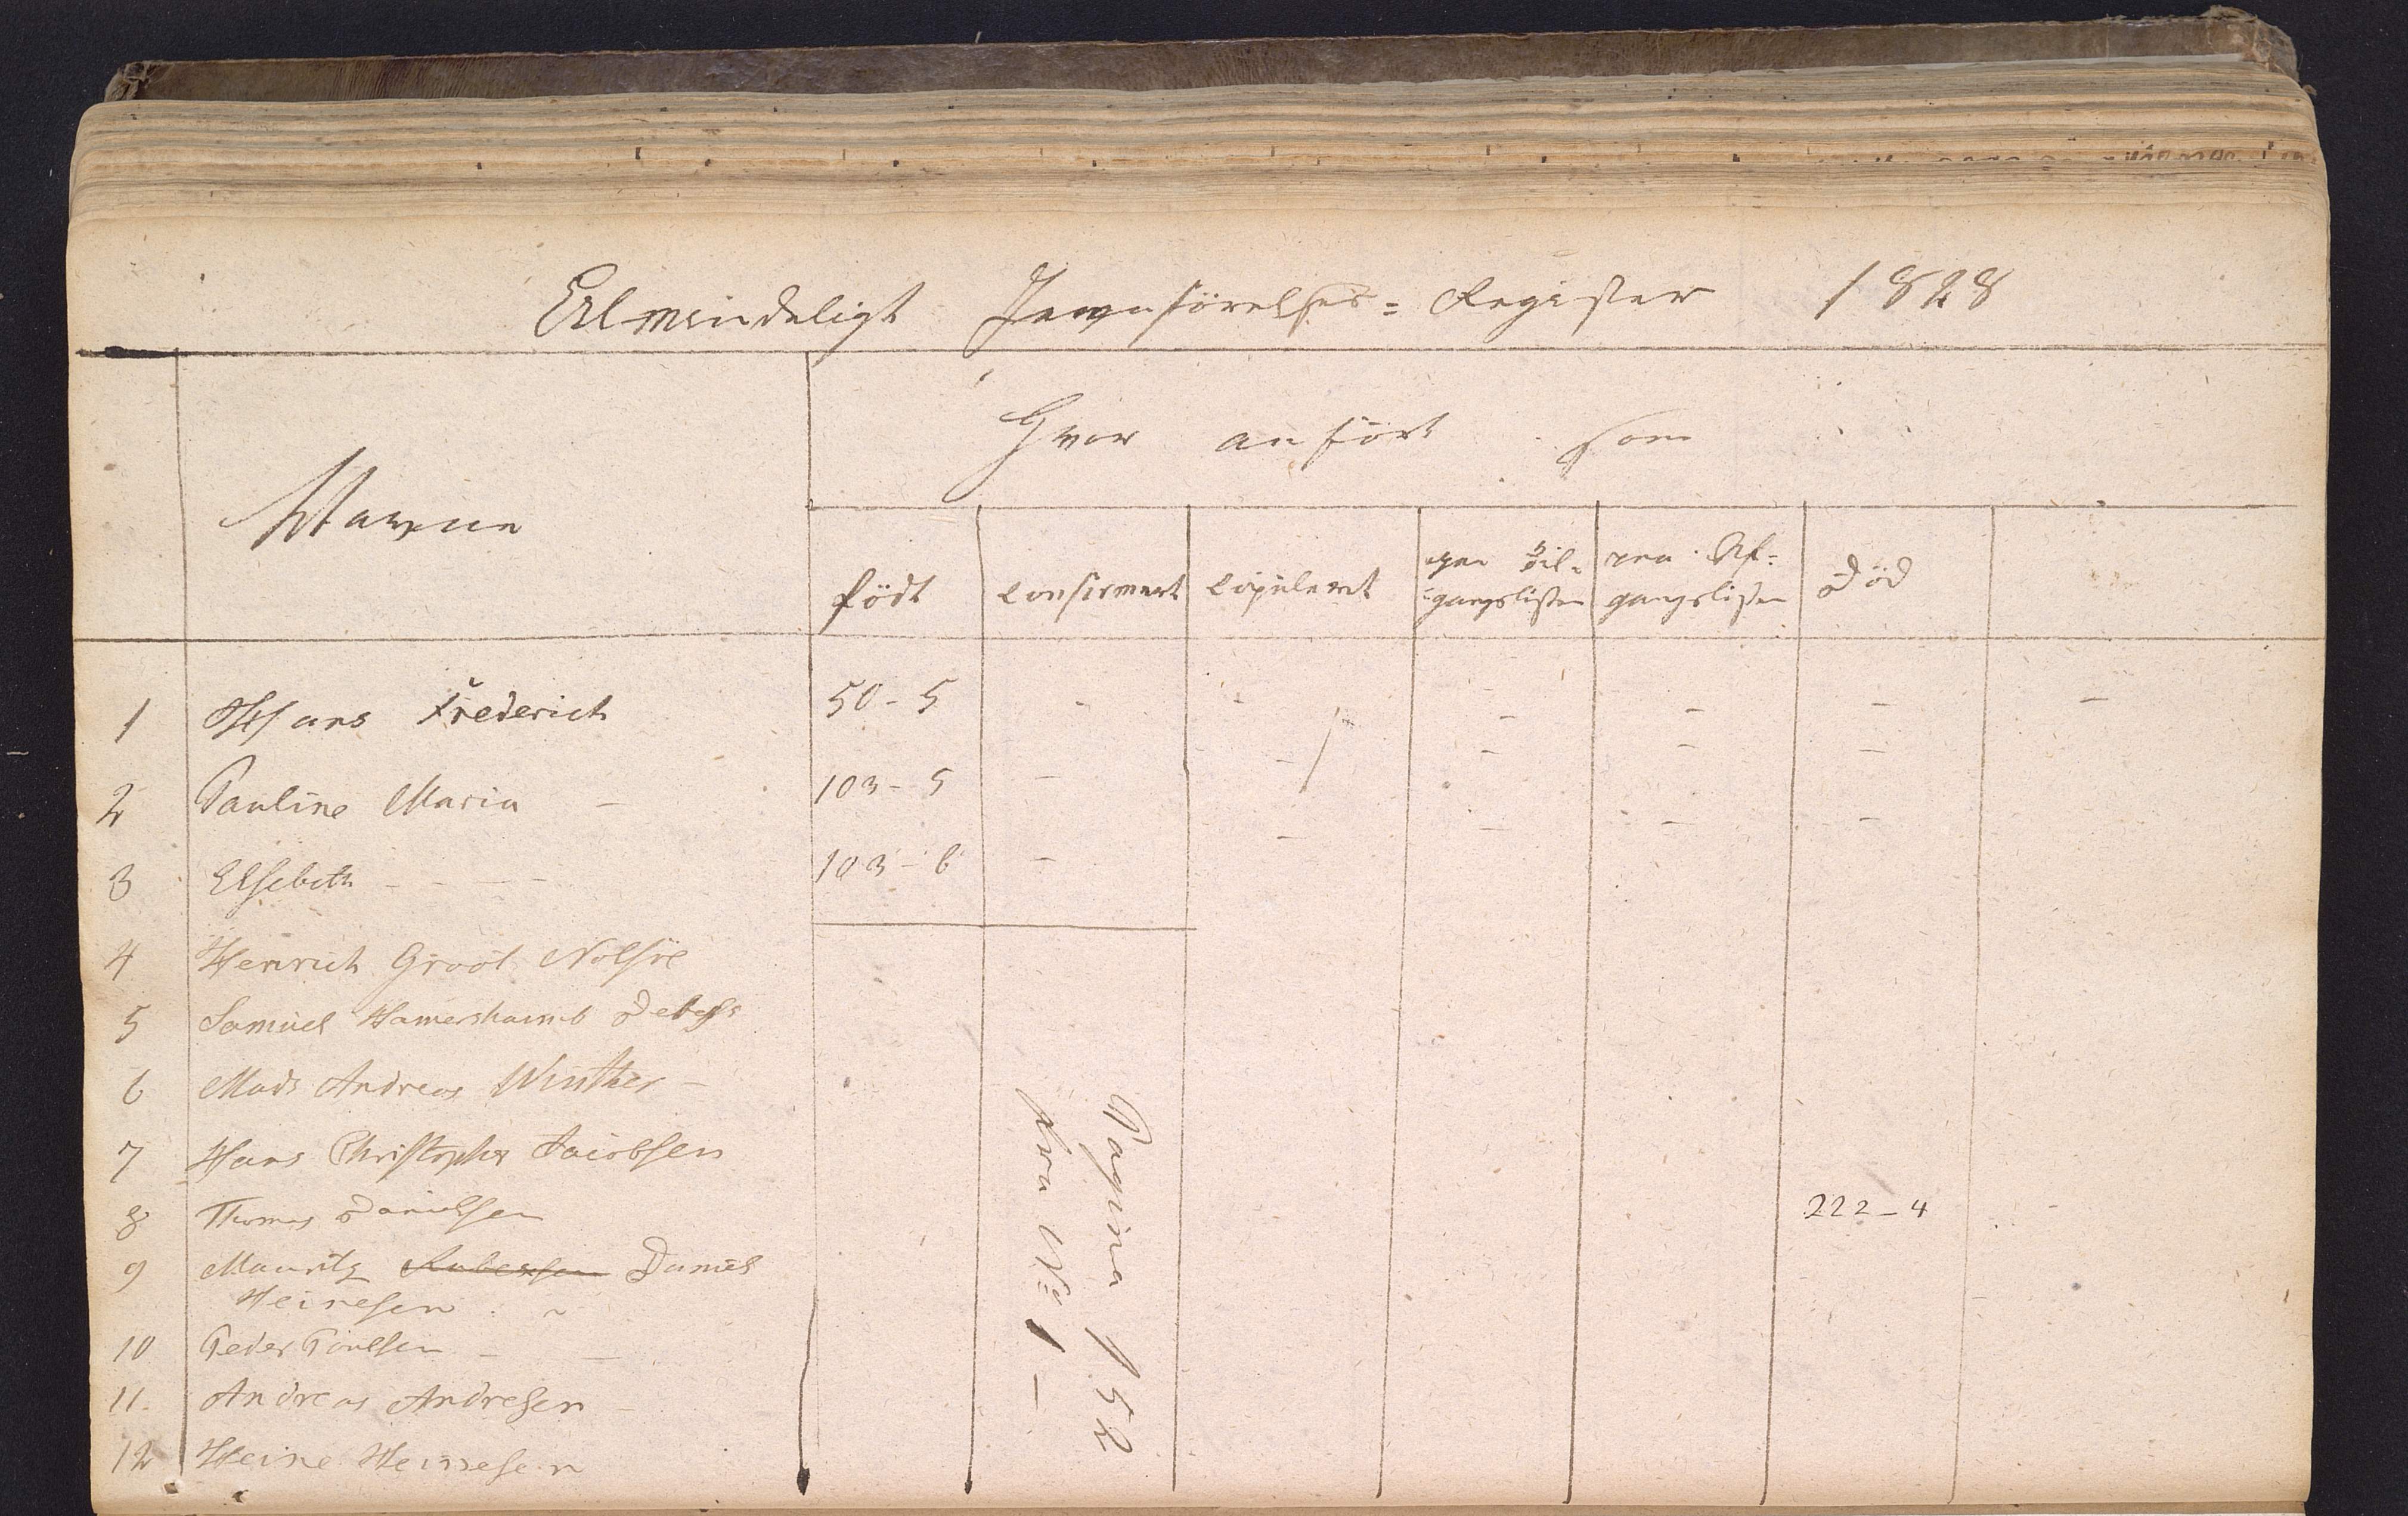 Almindeligt Jevnførelses=Register 1828
Navne
Hvor anført som
født
confirmert
copuleret
paa Til-
gangslisten
paa Af-
gangslisten
død
1 Hans Frederich 50-5 - - - - - -
2 Pauline Maria - 103-5 - - - - -
3 Elsebeth - - - 103-6 - - - - -
4 Henrich Groot Nolsøe
5 Samuel Hamershaimb Debes
6 Mads Andreas Winther -
7 Hans Christopher Jacobsen
8 Thomas Danielsen 222-4
9 Mauritz Rubeksen Daniel
Heinesen
10 Peder Poulsen - -
11. Andreas Andresen -
12 Heine Heinesen
Pagina 152
fra No 1 -